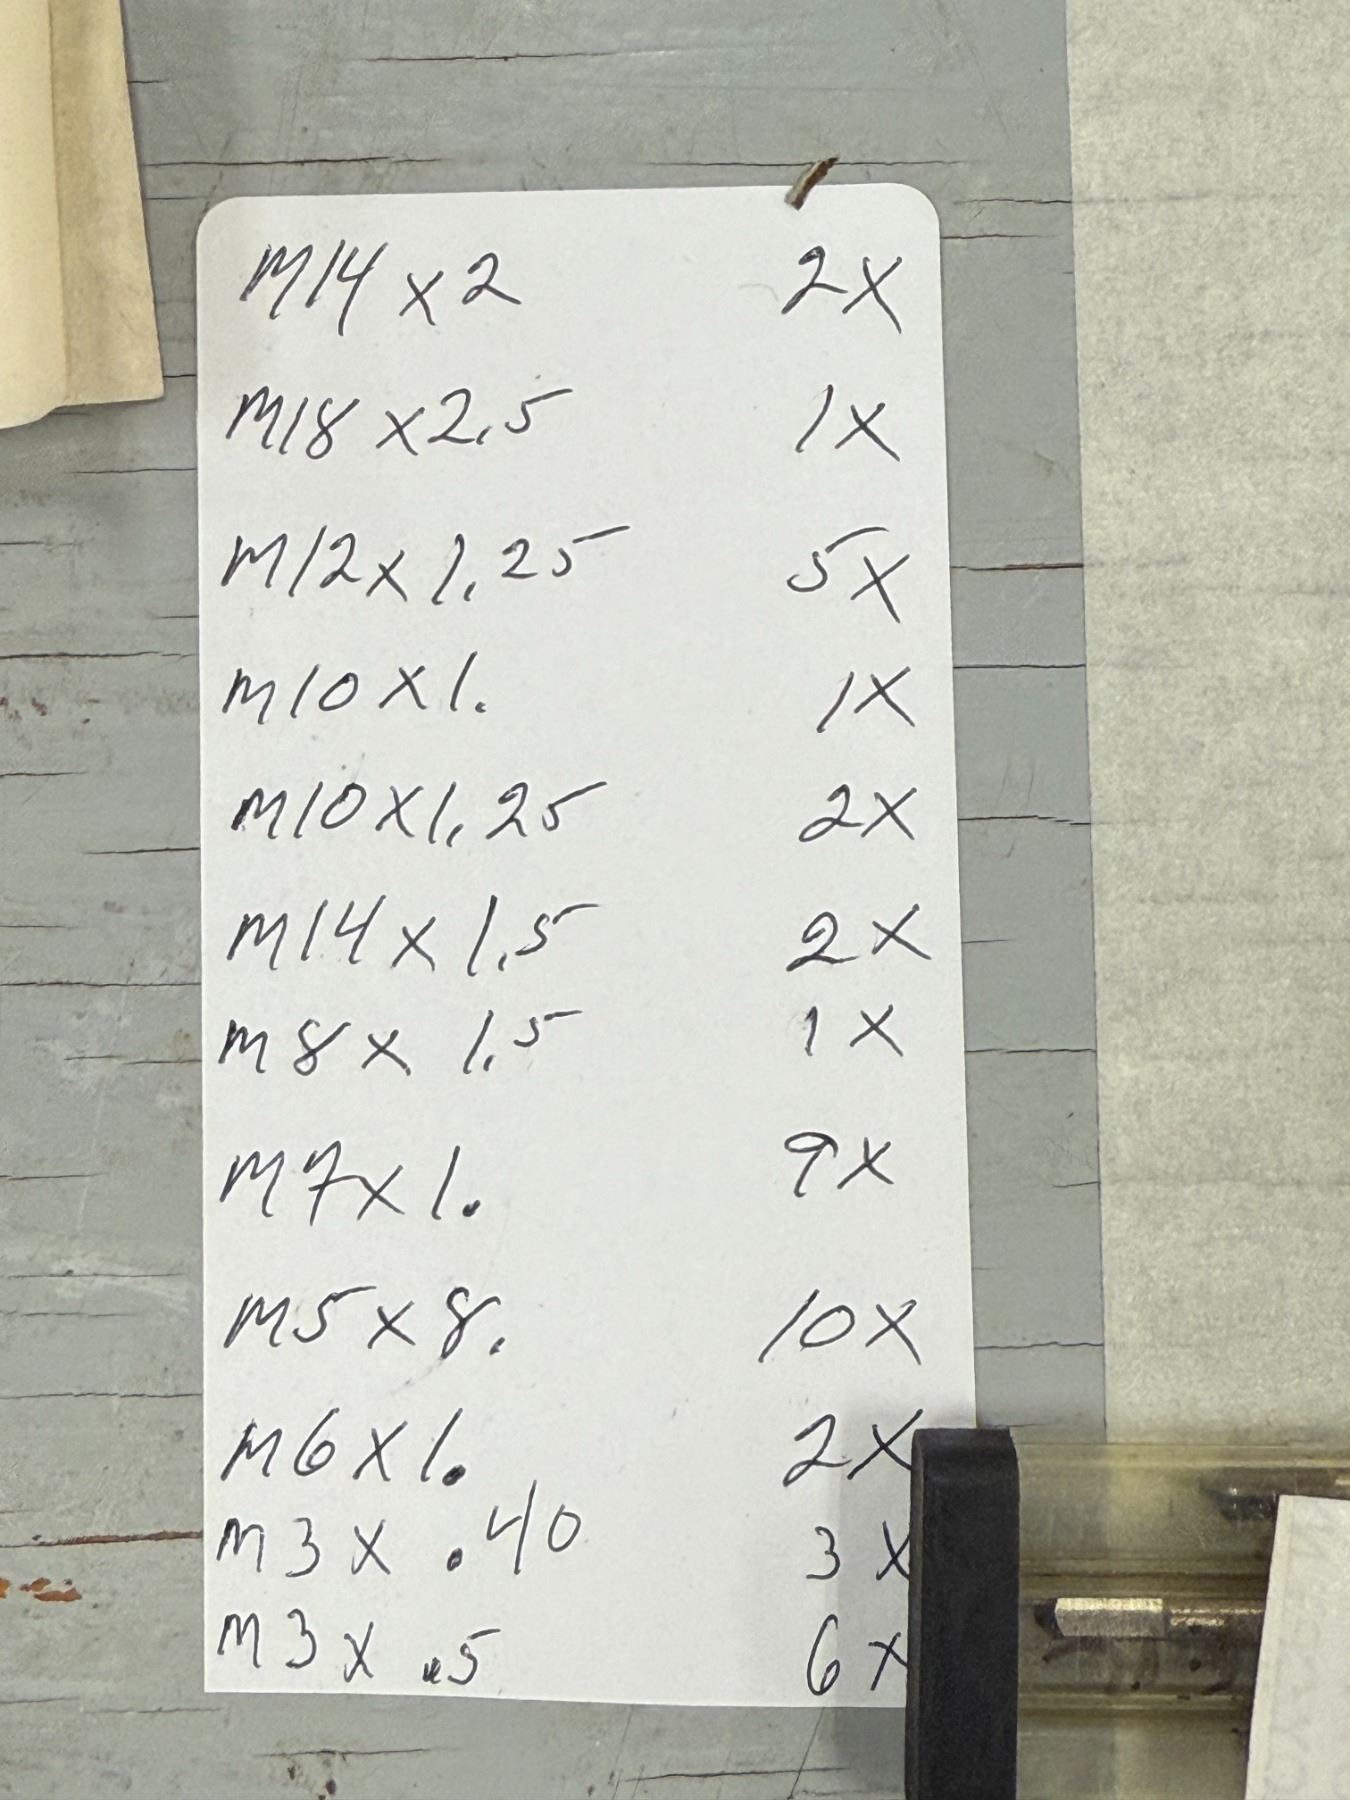 M14 x 2 2X
M18 x 2.5 1X
M12 x 1.25 5X
M10 x 1. 1X
M10 x 1.25 2X
M14 x 1.5 2X
M8 x 1.5 1X
M7 x 1. 9X
M5 x 8. 10X
M6 x 1. 2X
M3 x .40 3X
M3 x .5 6X